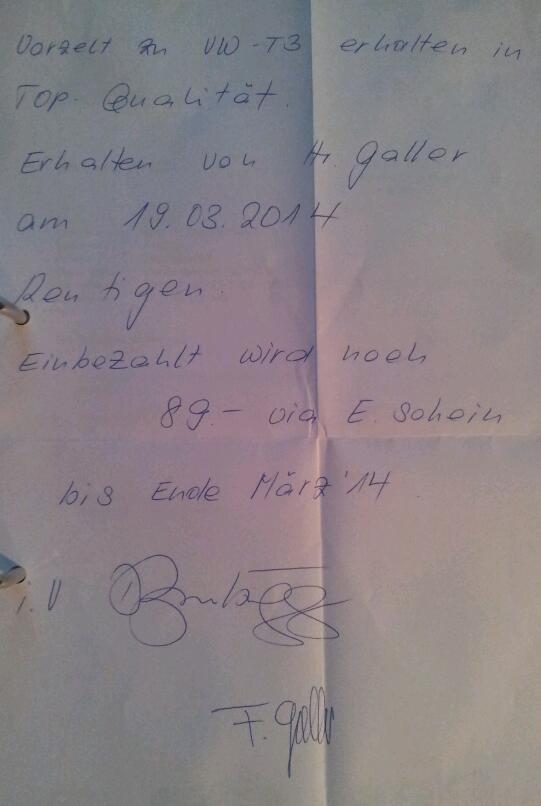 Vorzelt zu VW-T3 erhalten in
Top. Qualität.
Erhalten von Hr. Galler
am 19.03.2014
Rentigen.
Einbezahlt wird noch
89.- via E. Schein
bis Ende März '14.
i.V
F. Galler